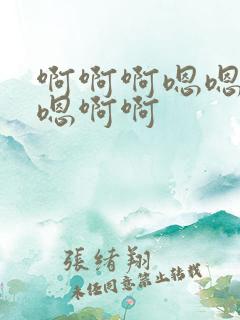 啊啊啊嗯嗯
嗯啊啊
張緒翔
未经同意禁止转载